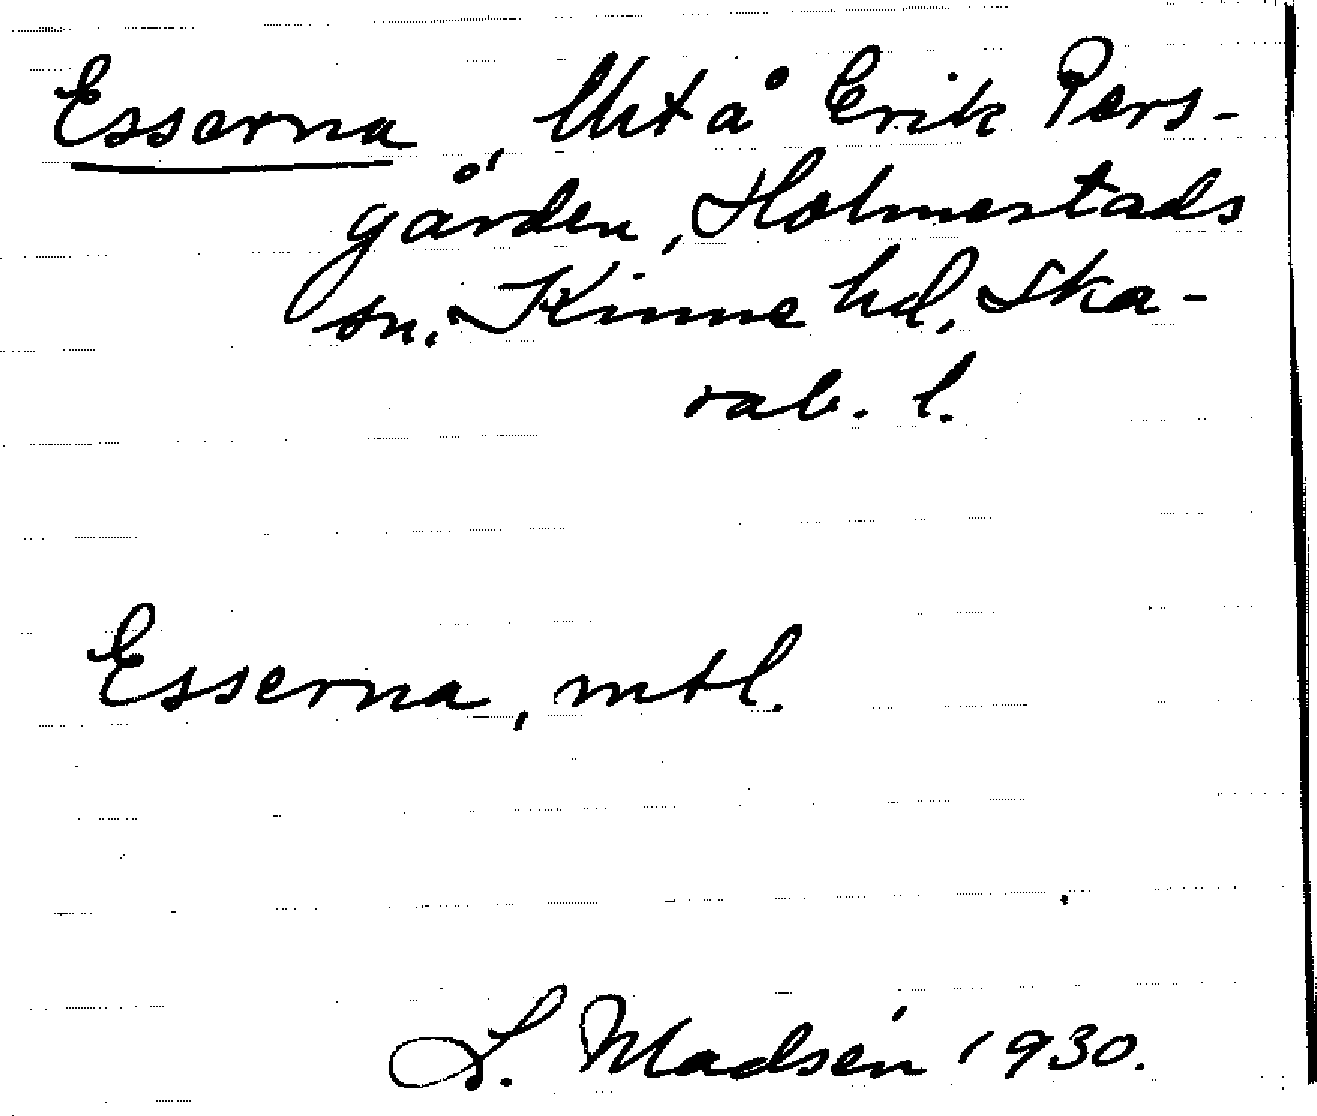 Esserna, Urt å Erik Pers-
gården, Holmestads
sn. Kinne hd, Ska-
rab. l.
Esserna, mtl.
L. Madsén 1930.